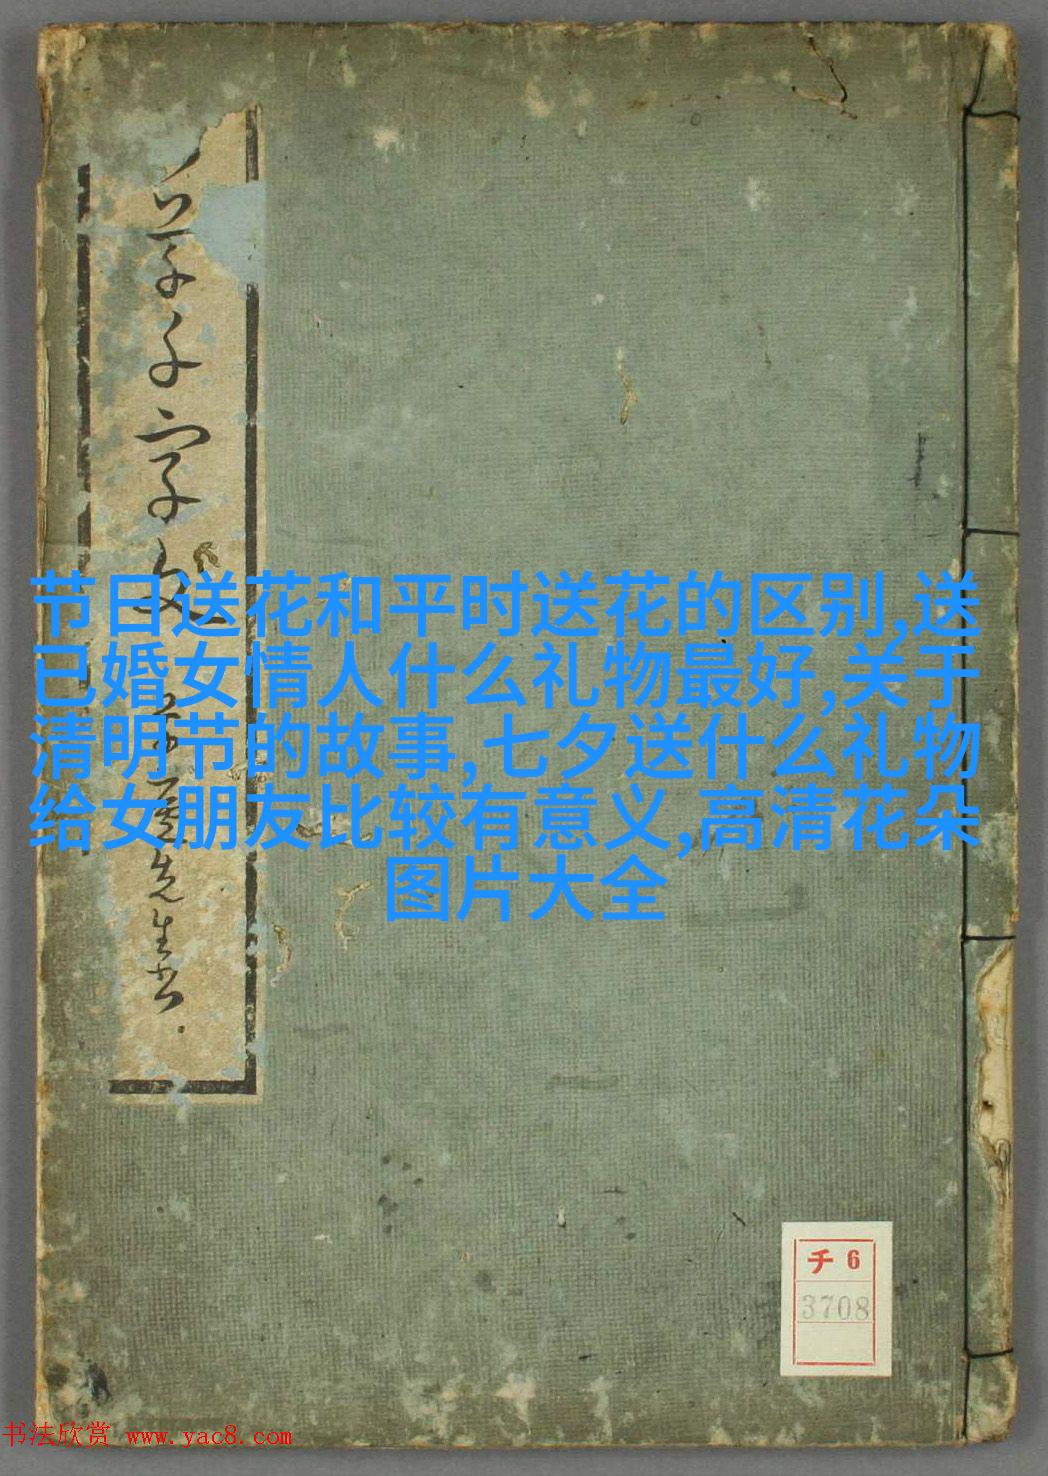 草千字文
先生書
节日送花和平时送花的区别,送
已婚女情人什么礼物最好,关于
清明节的故事,七夕送什么礼物
给女朋友比较有意义,高清花朵
图片大全
チ 6
3708
书法欣赏 www.yac8.com